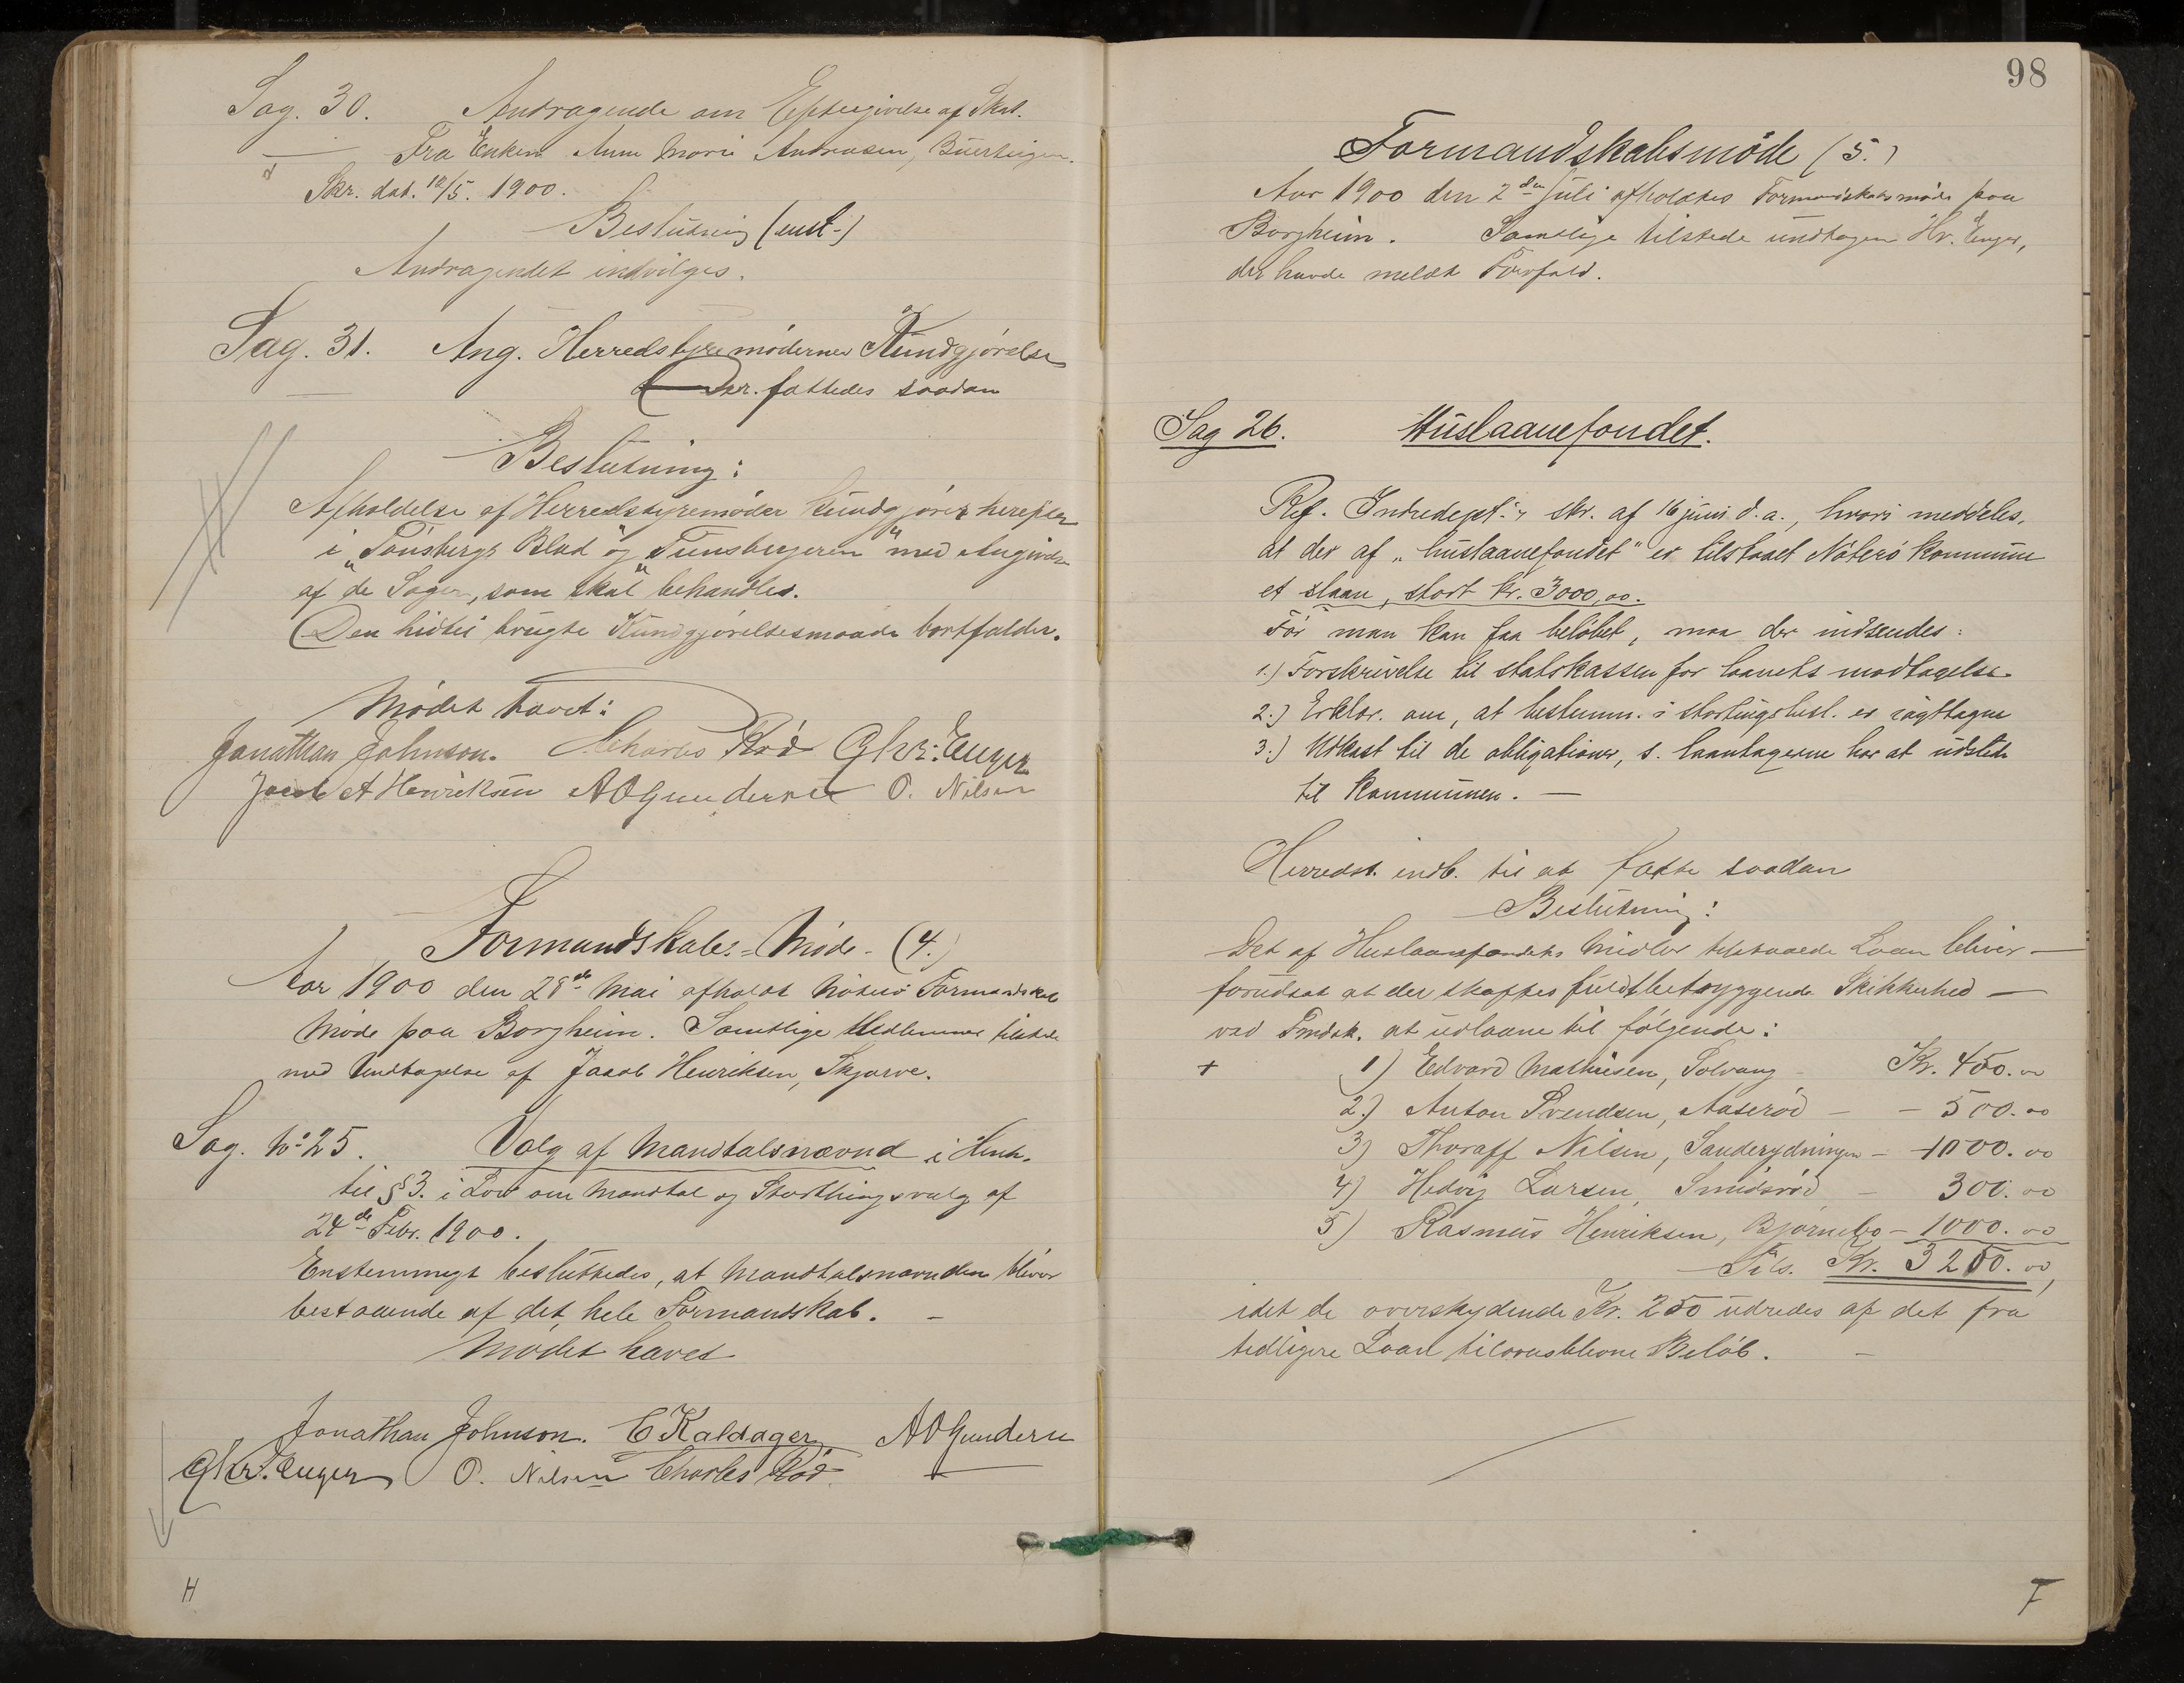 Sag. 30. Andragende om Eftergivelse af Skat.
Fra Enken Anne Marie Andreasen,
Skr. dat. 12/5. 1900.
Beslutning (enst-)
Andragendet indvilges.
Sag. 31. Ang. Herredstyremødernes Kundgjørelse
Der fattedes saadan
Beslutning:
Afholdelse af Herredstyremøder kundgjøres herefter
i „Tønsbergs Blad" og „Tunsbergeren" med Angivelse
af de Sager, som skal behandles.
Den hidtil brugte Kundgjørelsesmaade bortfalder.
Mødet hævet:
Jonathan Johnson. Charles Rød Chr. Enger
Jacob A Henriksen A O Gundersen O. Nilsen
Formandskabs-Møde - (4.)
Aar 1900 den 28de Mai afholdt Nøterø Formandskab
Møde paa Borgheim. Samtlige Medlemmer tilstede
med Undtagelse af Jacob Henriksen, Skjerve.
Sag. No 25. Valg af Mandtalsnævnd i Henh.
til § 3. i Lov om Mandtal og Storthingsvalg af
24de Febr. 1900.
Enstemmigt besluttedes, at Mandtalsnævnden bliver
bestaaende af det hele Formandskab. -
Mødet hævet
Jonathan Johnson. C Kaldager A O Gundersen
Chr. Enger O. Nilsen Charles Rød
H
98
Formandskabsmøde (5.)
Aar 1900 den 2den Juli afholdtes Formandskabsmøde paa
Borgheim. Samtlige tilstede undtagen Hr. Enger,
der havde meldt Forfald.
Sag 26. Huslaanefondet.
Ref. Indredept.'s skr. af 16 juni d.a., hvori meddeles,
at der af „huslaanefondet" er tilstaaet Nøterø kommune
et slaan, stort kr. 3000,00.
Før man kan faa beløbet, maa der indsendes:
1.) Forskrivelse til statskassen for laanets modtagelse.
2.) Erklær. om, at bestemm. i stortingsbesl. er iagttagne
3.) Udkast til de obligationer, s. laantagerne har at udstede
til kommunen. -
Herredst. indb. til at fatte saadan
Beslutning:
Det af Huslaanefondets Midler tilstaaede Laan bliver -
forudsat at der skaffes fuldt betryggende Sikkerhed -
ved Fmdsk. at udlaane til følgende:
+ 1) Edvard Mathisen, Solvang - Kr. 450.00
2.) Anton Svendsen, Aaserød - - 500.00
3) Thoralf Nilsen, Sanderydningen - 1000.00
4) Hedvig Larsen, Smidsrød - 300.00
5) Rasmus Henriksen, Bjørnebo - 1000.00
Tils. Kr. 3250.00,
idet de overskydende Kr. 250 udredes af det fra
tidligere Laan tiloversblevne Beløb. -
F